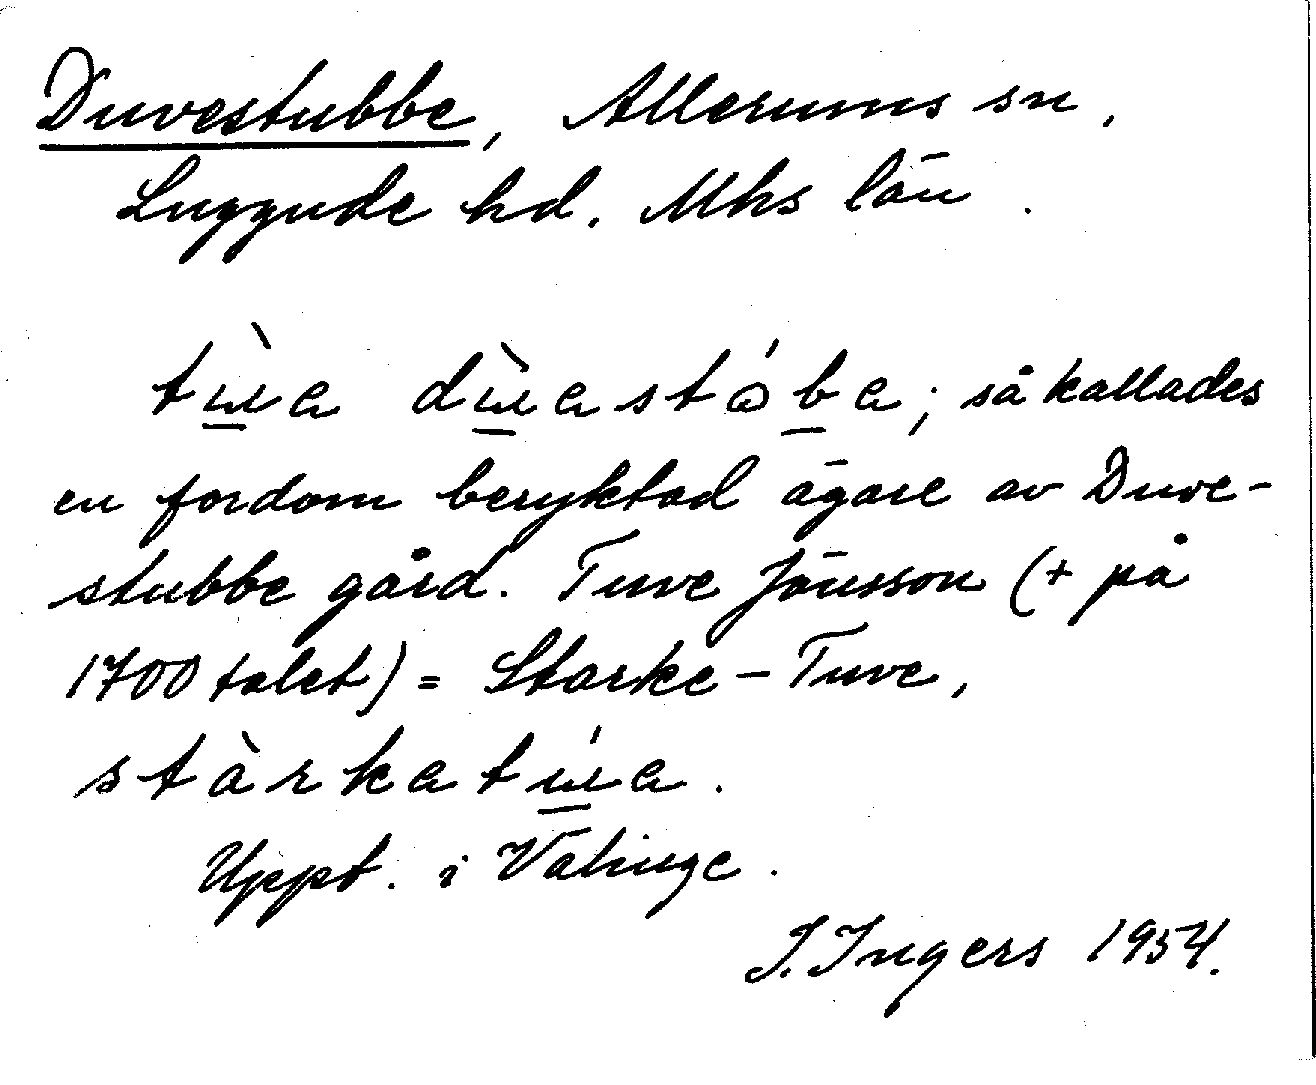 Duvestubbe, Allerums sn,
Luggude hd. Mhs län.
tɯ̲̀a dɯ̲̀astɷ́b̲a; så kallades
en fordom beryktad ägare av Duve-
stubbe gård. Tuve Jönsson († på
1700 talet) = Starke-Tuve,
stàrkatɯ̲́a.
Uppt. i Välinge.
I. Ingers 1954.